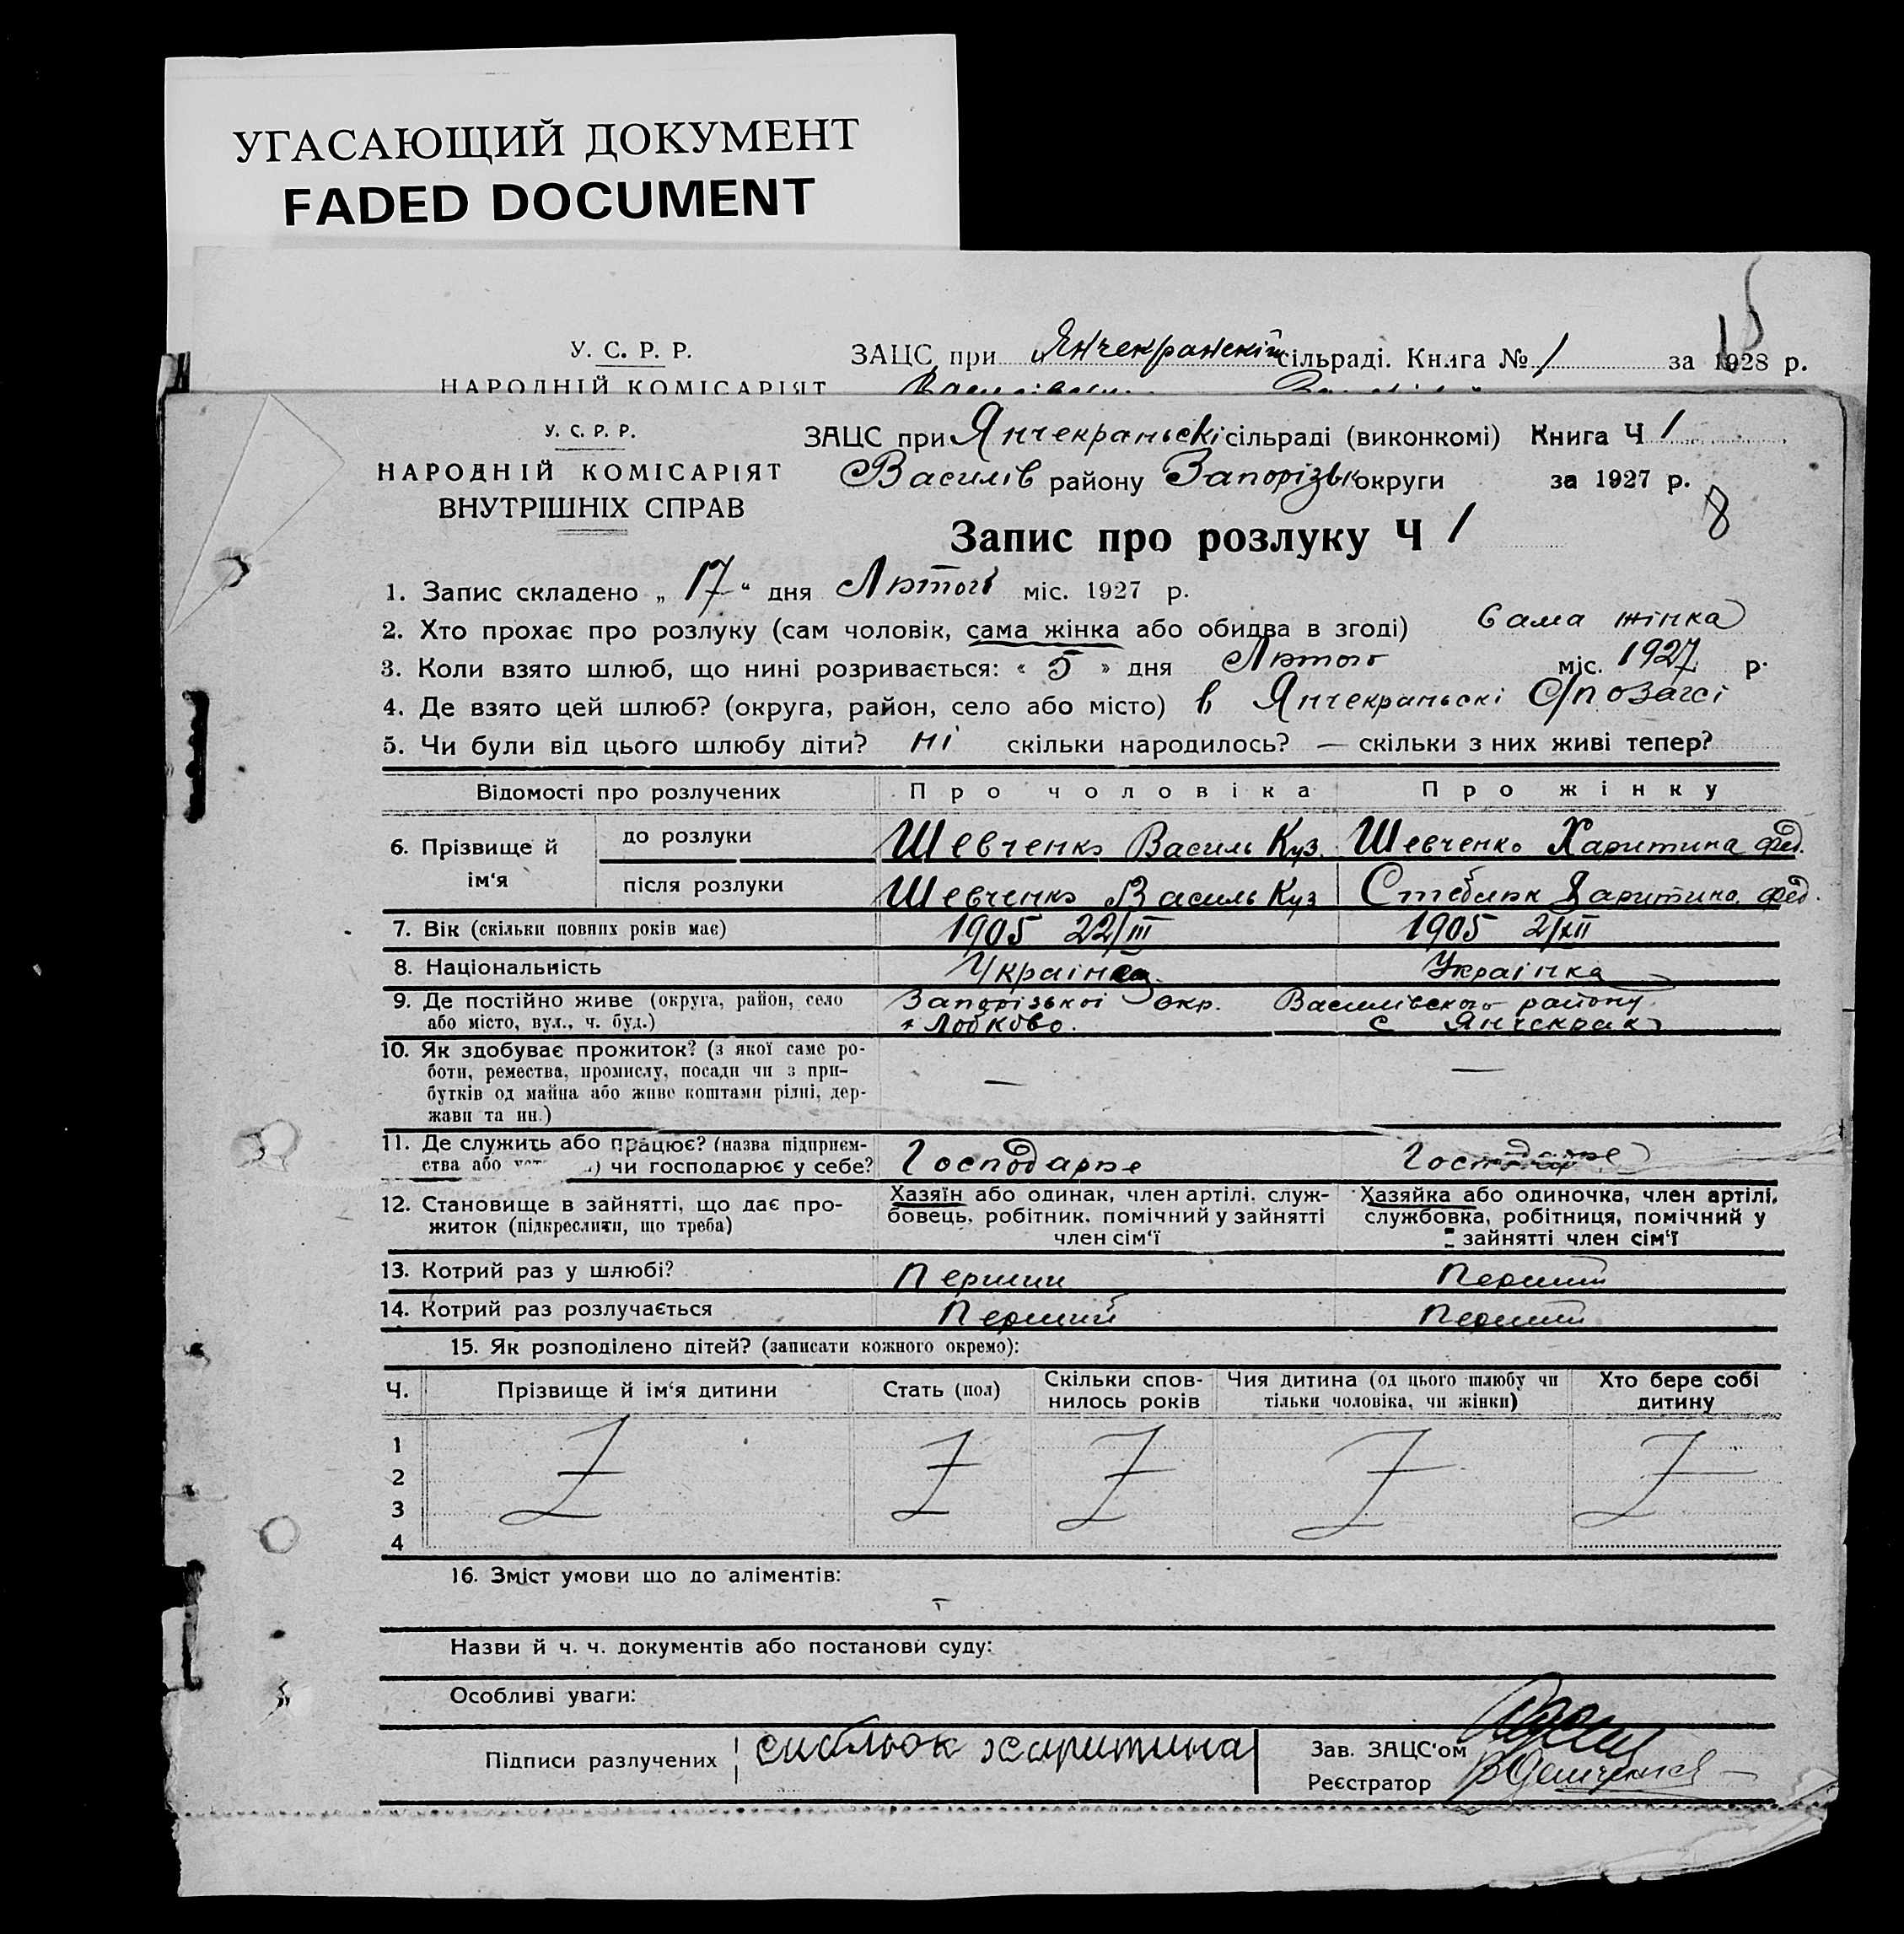 УГАСАЮЩИЙ ДОКУМЕНТ
FADED DOCUMENT
У. С. Р. Р.
ЗАЦС при Янчекранскій сільраді. Книга № 1 за 1928 р.
НАРОДНІЙ КОМІСАРІЯТ
У. С. Р. Р.
НАРОДНІЙ КОМІСАРІЯТ
ВНУТРІШНІХ СПРАВ
ЗАЦС при Янчекраньскі сільраді (виконкомі) Книга Ч 1
Василів району Запорізьк округи за 1927 р.
8
Запис про розлуку Ч 1
1. Запис складено „ 17 “ дня Лютого міс. 1927 р.
2. Хто прохає про розлуку (сам чоловік, сама жінка або обидва в згоді) Сама жінка
3. Коли взято шлюб, що нині розривається: « 5 » дня Лютого міс. 1927 р.
4. Де взято цей шлюб? (округа, район, село або місто) в Янчекраньскі
5. Чи були від цього шлюбу діти? ні скільки народилось? — скільки з них живі тепер?
Відомості про розлучених Про чоловіка Про жінку
6. Прізвище й ім‘я
до розлуки Шевченко Василь Куз. Шевченко Харитина Фед.
після розлуки Шевченко Василь Куз Стеблюк Харитина Фед.
7. Вік (скільки повних років має) 1905 22/III 1905 2/XII
8. Національність Українец Українка
9. Де постійно живе (округа, район, село Запорізької окр. Василівского району
або місто, вул., ч. буд.) х Лобково. с Янчекрак
10. Як здобуває прожиток? (з якої саме ро-
боти, ремества, промислу, посади чи з при-
бутків од майна або живе коштами рідні, дер-
жави та ин.) — —
11. Де служить або працює? (назва підприєм-
ства або чи господарює у себе? Господарює
12. Становище в зайнятті, що дає про-
житок (підкреслити, що треба)
Хазяїн або одинак, член артілі, служ-
бовець, робітник, помічний у зайнятті
член сім‘ї
Хазяйка або одиночка, член артілі,
службовка, робітниця, помічний у
зайнятті член сім‘ї
13. Котрий раз у шлюбі? Перший Перший
14. Котрий раз розлучається Перший Перший
15. Як розподілено дітей? (записати кожного окремо):
Ч. Прізвище й ім‘я дитини Стать (пол) Скільки спов-
нилось років Чия дитина (од цього шлюбу чи
тільки чоловіка, чи жінки) Хто бере собі
дитину
1
2
3
4
16. Зміст умови що до аліментів:
Назви й ч. ч. документів або постанови суду:
Особливі уваги:
Підписи разлучених стаблюк харитина
Зав. ЗАЦС‘ом
Реєстратор